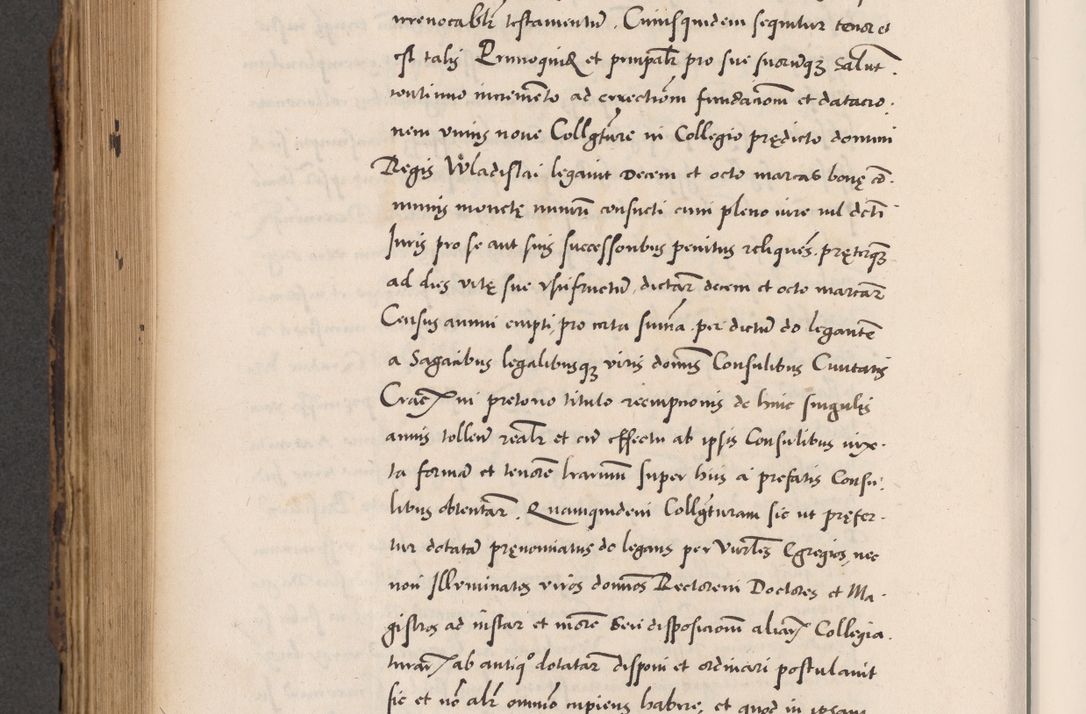 irrevocabilr testamentū. Cuiusquidem sequitur tenor et
est talis Primoquidē et principalr pro sue suorūq3 Salutꝭ.
continuo incremēto ad errectiōm fundaciom et datacio-
nem vnius noue Collgture in Collegio prędicto domini
Regis Wladislai legauit Decem et octo marcas bonę cō-
munis monetę numeri consueti cum pleno iure nil dcti
Iuris pro se aut suis successoribus penitus reliqueñ. pręterq3
ad dies vitę sue vsufructū, dictar̄ decem et octo marcar̄
Census annui empti, pro certa summa per dictū do legantē
a Sagacibus legalibusq3 viris domīs Consulibus Ciuitatis
Crac̄ in pretorio titulo reempcionis de hinc singulis
annis tollen̄ realr et cū effectu ab ipsis Consulibus iux-
ta formā et tenorē lrarum super hiis a prefatis Consu-
libus obtentar̄. Quamquidem Collgturam sic ut pręfer-
tur dotatā pręnominatus do legans per Vnrles Egregios, nec
non Illuminatos viros domīos Rectorem Doctores et Ma-
gistros ad instar et morē seu disposiciom aliar̄ Collegia-
turar̄ ab antiqᵒ dotatar̄ disponi et ordinari postulauit
sic et nō alr omnīo cupiens habere, et quod in ipsam